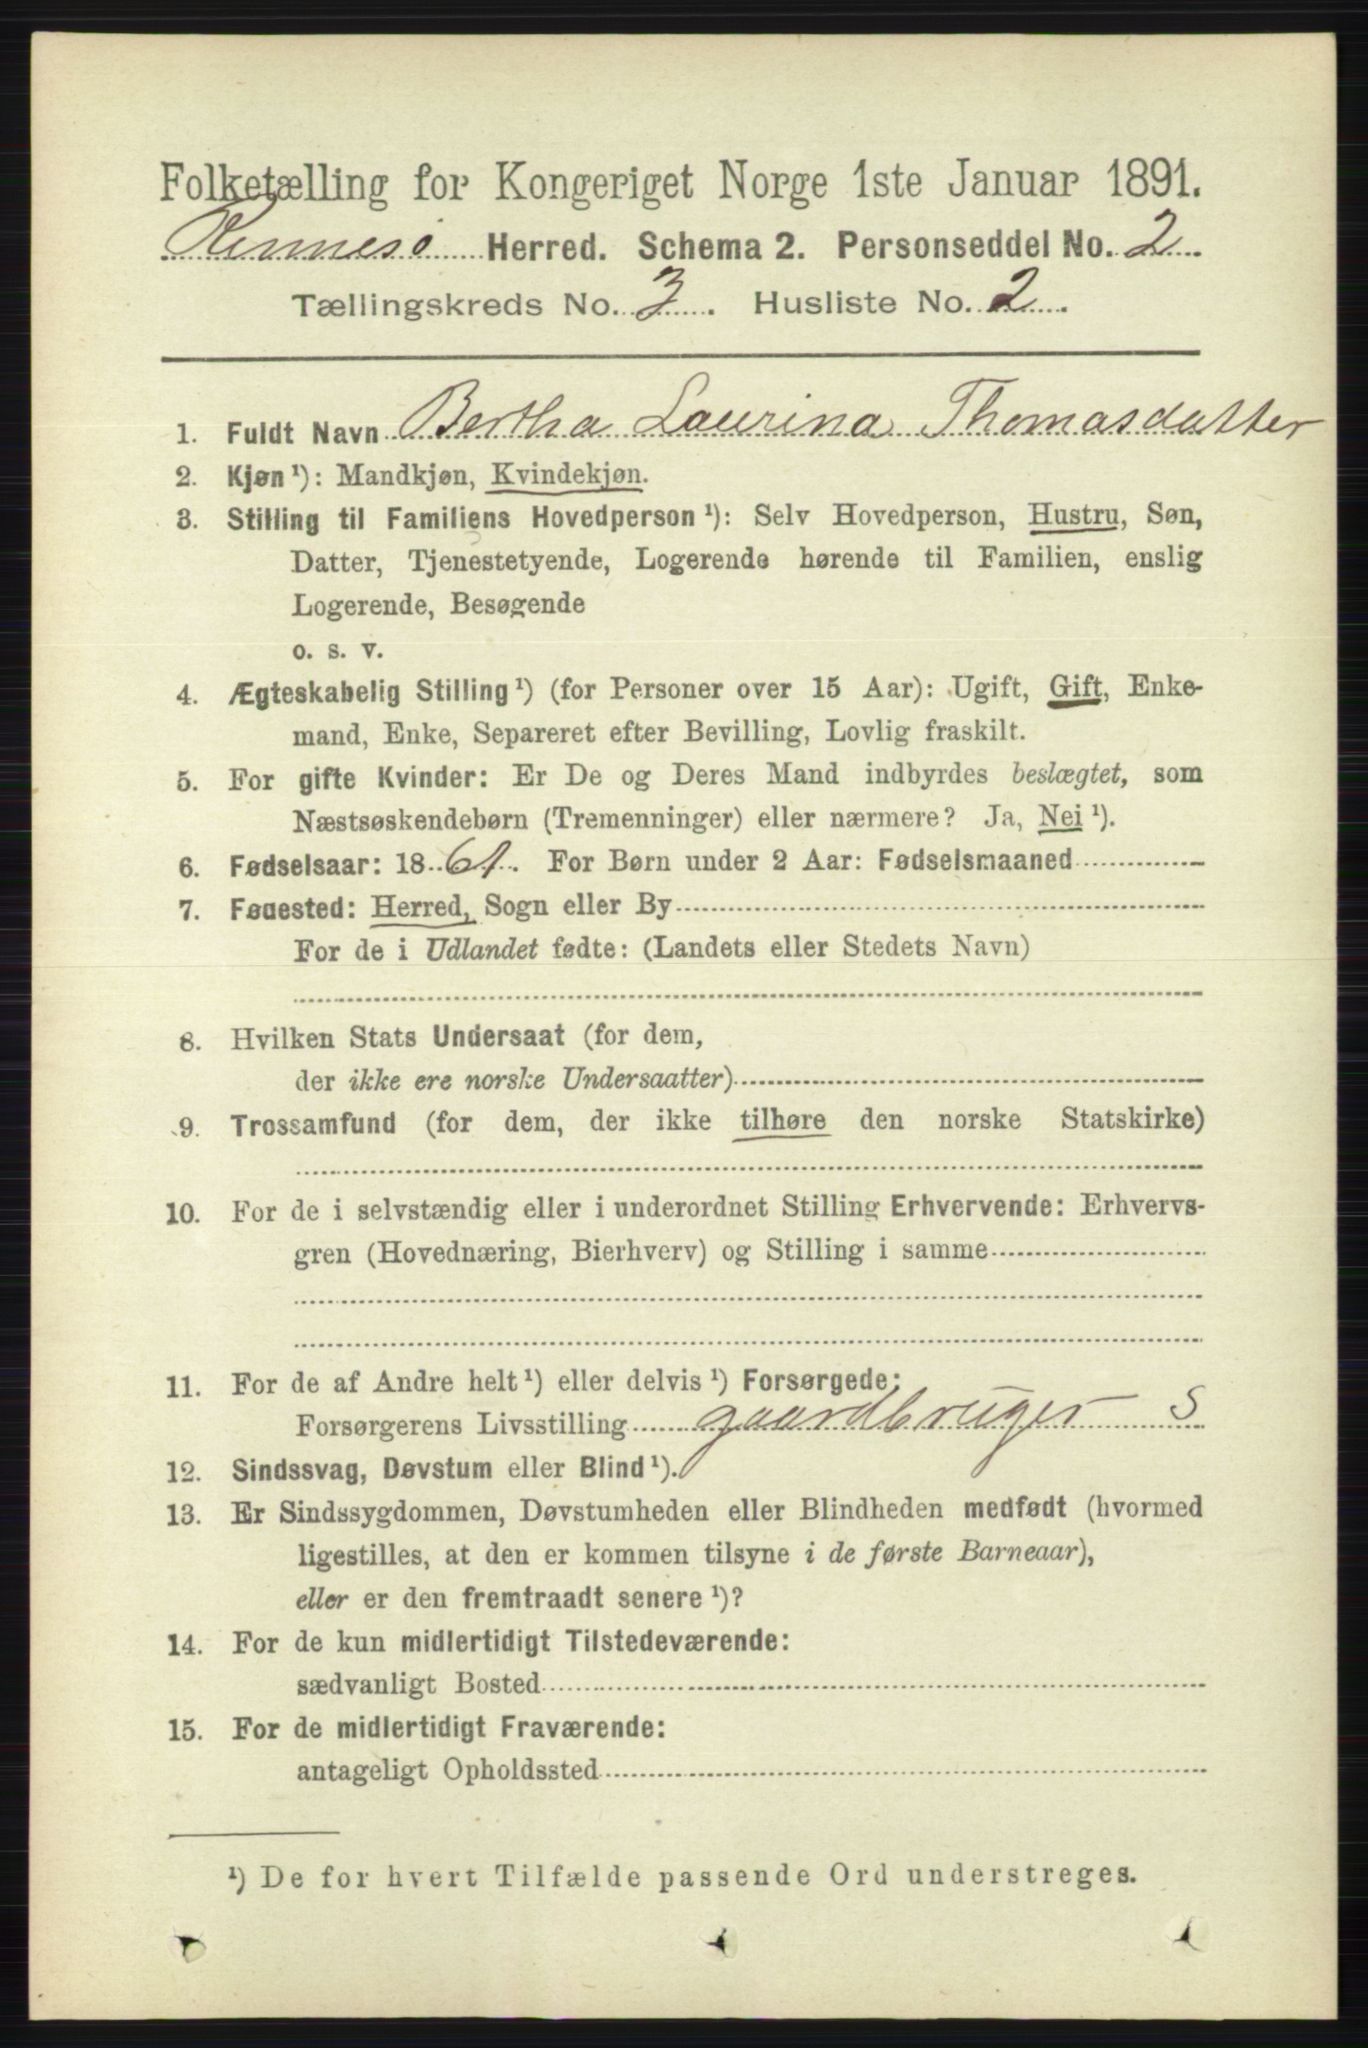 Folketælling for Kongeriget Norge 1ste Januar 1891.
Rennesø Herred. Schema 2. Personseddel No. 2
Tællingskreds No. 3. Husliste No. 2.
1. Fuldt Navn Bertha Laurina Thomasdatter
2. Kjøn¹): Mandkjøn, Kvindekjøn.
3. Stilling til Familiens Hovedperson¹): Selv Hovedperson, Hustru, Søn,
Datter, Tjenestetyende, Logerende hørende til Familien, enslig
Logerende, Besøgende
o. s. v.
4. Ægteskabelig Stilling¹) (for Personer over 15 Aar): Ugift, Gift, Enke-
mand, Enke, Separeret efter Bevilling, Lovlig fraskilt.
5. For gifte Kvinder: Er De og Deres Mand indbyrdes beslægtet, som
Næstsøskendebørn (Tremenninger) eller nærmere? Ja, Nei¹).
6. Fødselsaar: 1861. For Børn under 2 Aar: Fødselsmaaned
7. Fødested: Herred, Sogn eller By
For de i Udlandet fødte: (Landets eller Stedets Navn)
8. Hvilken Stats Undersaat (for dem,
der ikke ere norske Undersaatter)
9. Trossamfund (for dem, der ikke tilhøre den norske Statskirke)
10. For de i selvstændig eller i underordnet Stilling Erhvervende: Erhvervs-
gren (Hovednæring, Bierhverv) og Stilling i samme
11. For de af Andre helt¹) eller delvis¹) Forsørgede:
Forsørgerens Livsstilling gaardbruger S
12. Sindssvag, Døvstum eller Blind¹).
13. Er Sindssygdommen, Døvstumheden eller Blindheden medfødt (hvormed
ligestilles, at den er kommen tilsyne i de første Barneaar),
eller er den fremtraadt senere¹)?
14. For de kun midlertidigt Tilstedeværende:
sædvanligt Bosted
15. For de midlertidigt Fraværende:
antageligt Opholdssted
¹) De for hvert Tilfælde passende Ord understreges.